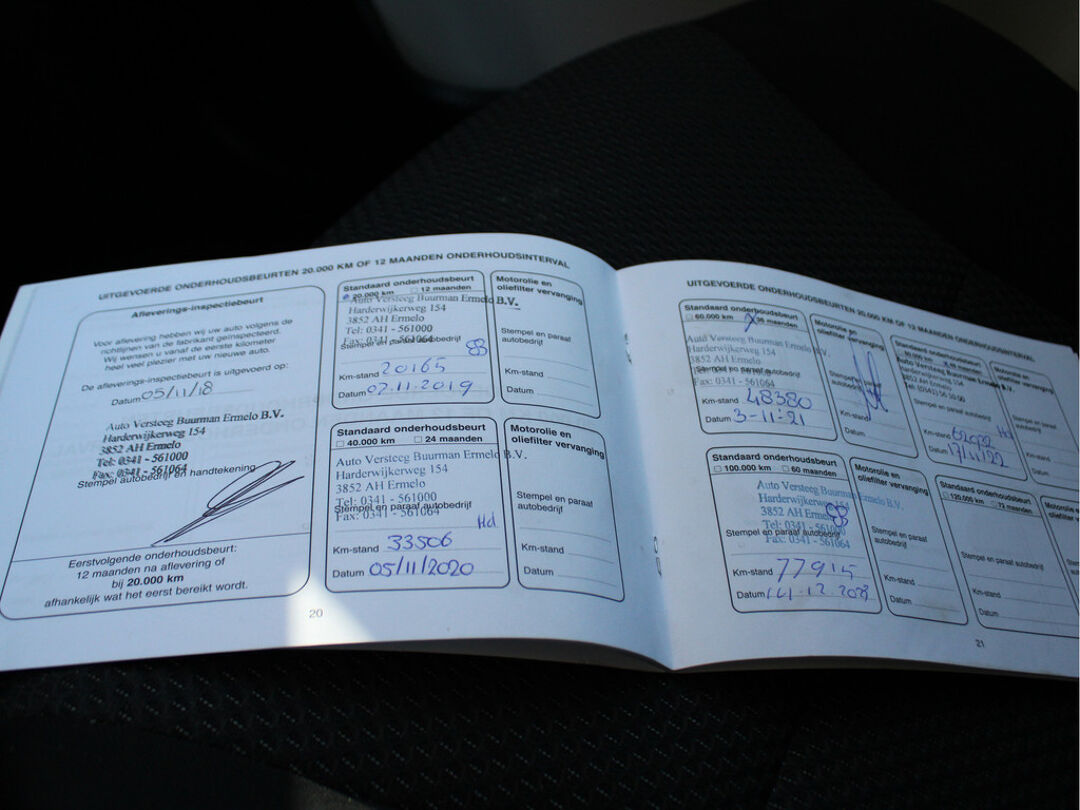 UITGEVOERDE ONDERHOUDSBEURTEN 20.000 KM OF 12 MAANDEN ONDERHOUDSINTERVAL
Afleverings-inspectiebeurt
Voor aflevering hebben wij uw auto volgens de
richtlijnen van de fabrikant geïnspecteerd.
Wij wensen u vanaf de eerste kilometer
heel veel plezier met uw nieuwe auto.
De afleverings-inspectiebeurt is uitgevoerd op:
Datum 05/11/18
Auto Versteeg Buurman Ermelo B.V.
Harderwijkerweg 154
3852 AH Ermelo
Tel: 0341 - 561000
Fax: 0341 - 561064
Stempel autobedrijf en handtekening
Eerstvolgende onderhoudsbeurt:
12 maanden na aflevering of
bij 20.000 km
afhankelijk wat het eerst bereikt wordt.
Standaard onderhoudsbeurt
20.000 km 12 maanden
Auto Versteeg Buurman Ermelo B.V.
Harderwijkerweg 154
3852 AH Ermelo
Tel: 0341 - 561000
Fax: 0341 - 561064
Stempel en paraaf autobedrijf
Km-stand 20165
Datum 07.11.2019
Motorolie en
oliefilter vervanging
Stempel en paraaf
autobedrijf
Km-stand
Datum
Standaard onderhoudsbeurt
40.000 km 24 maanden
Auto Versteeg Buurman Ermelo B.V.
Harderwijkerweg 154
3852 AH Ermelo
Tel: 0341 - 561000
Fax: 0341 - 561064
Stempel en paraaf autobedrijf
Hd
Km-stand 33506
Datum 05/11/2020
Motorolie en
oliefilter vervanging
Stempel en paraaf
autobedrijf
Km-stand
Datum
20
UITGEVOERDE ONDERHOUDSBEURTEN 20.000 KM OF 12 MAANDEN ONDERHOUDSINTERVAL
Standaard onderhoudsbeurt
60.000 km 36 maanden
Auto Versteeg Buurman Ermelo B.V.
Harderwijkerweg 154
3852 AH Ermelo
Stempel en paraaf autobedrijf
Fax: 0341 - 561064
Km-stand 48380
Datum 3-11-21
Motorolie en
oliefilter vervanging
Stempel en paraaf
autobedrijf
Km-stand
Datum
Standaard onderhoudsbeurt
80.000 km 48 maanden
Auto Versteeg Buurman Ermelo B.V.
Harderwijkerweg 154
3852 AH Ermelo
Tel. (0341) 56 10 00
Stempel en paraaf autobedrijf
Hd
Km-stand
Datum 17/11/22
Motorolie en
oliefilter vervanging
Stempel en paraaf
autobedrijf
Km-stand
Datum
Standaard onderhoudsbeurt
100.000 km 60 maanden
Auto Versteeg Buurman Ermelo B.V.
Harderwijkerweg 154
3852 AH Ermelo
Tel: 0341 - 561000
Fax: 0341 - 561064
Stempel en paraaf autobedrijf
Km-stand 77915
Datum 14-12-2023
Motorolie en
oliefilter vervanging
Stempel en paraaf
autobedrijf
Km-stand
Datum
Standaard onderhoudsbeurt
120.000 km 72 maanden
Stempel en paraaf autobedrijf
Km-stand
Datum
Motorolie en
oliefilter
21